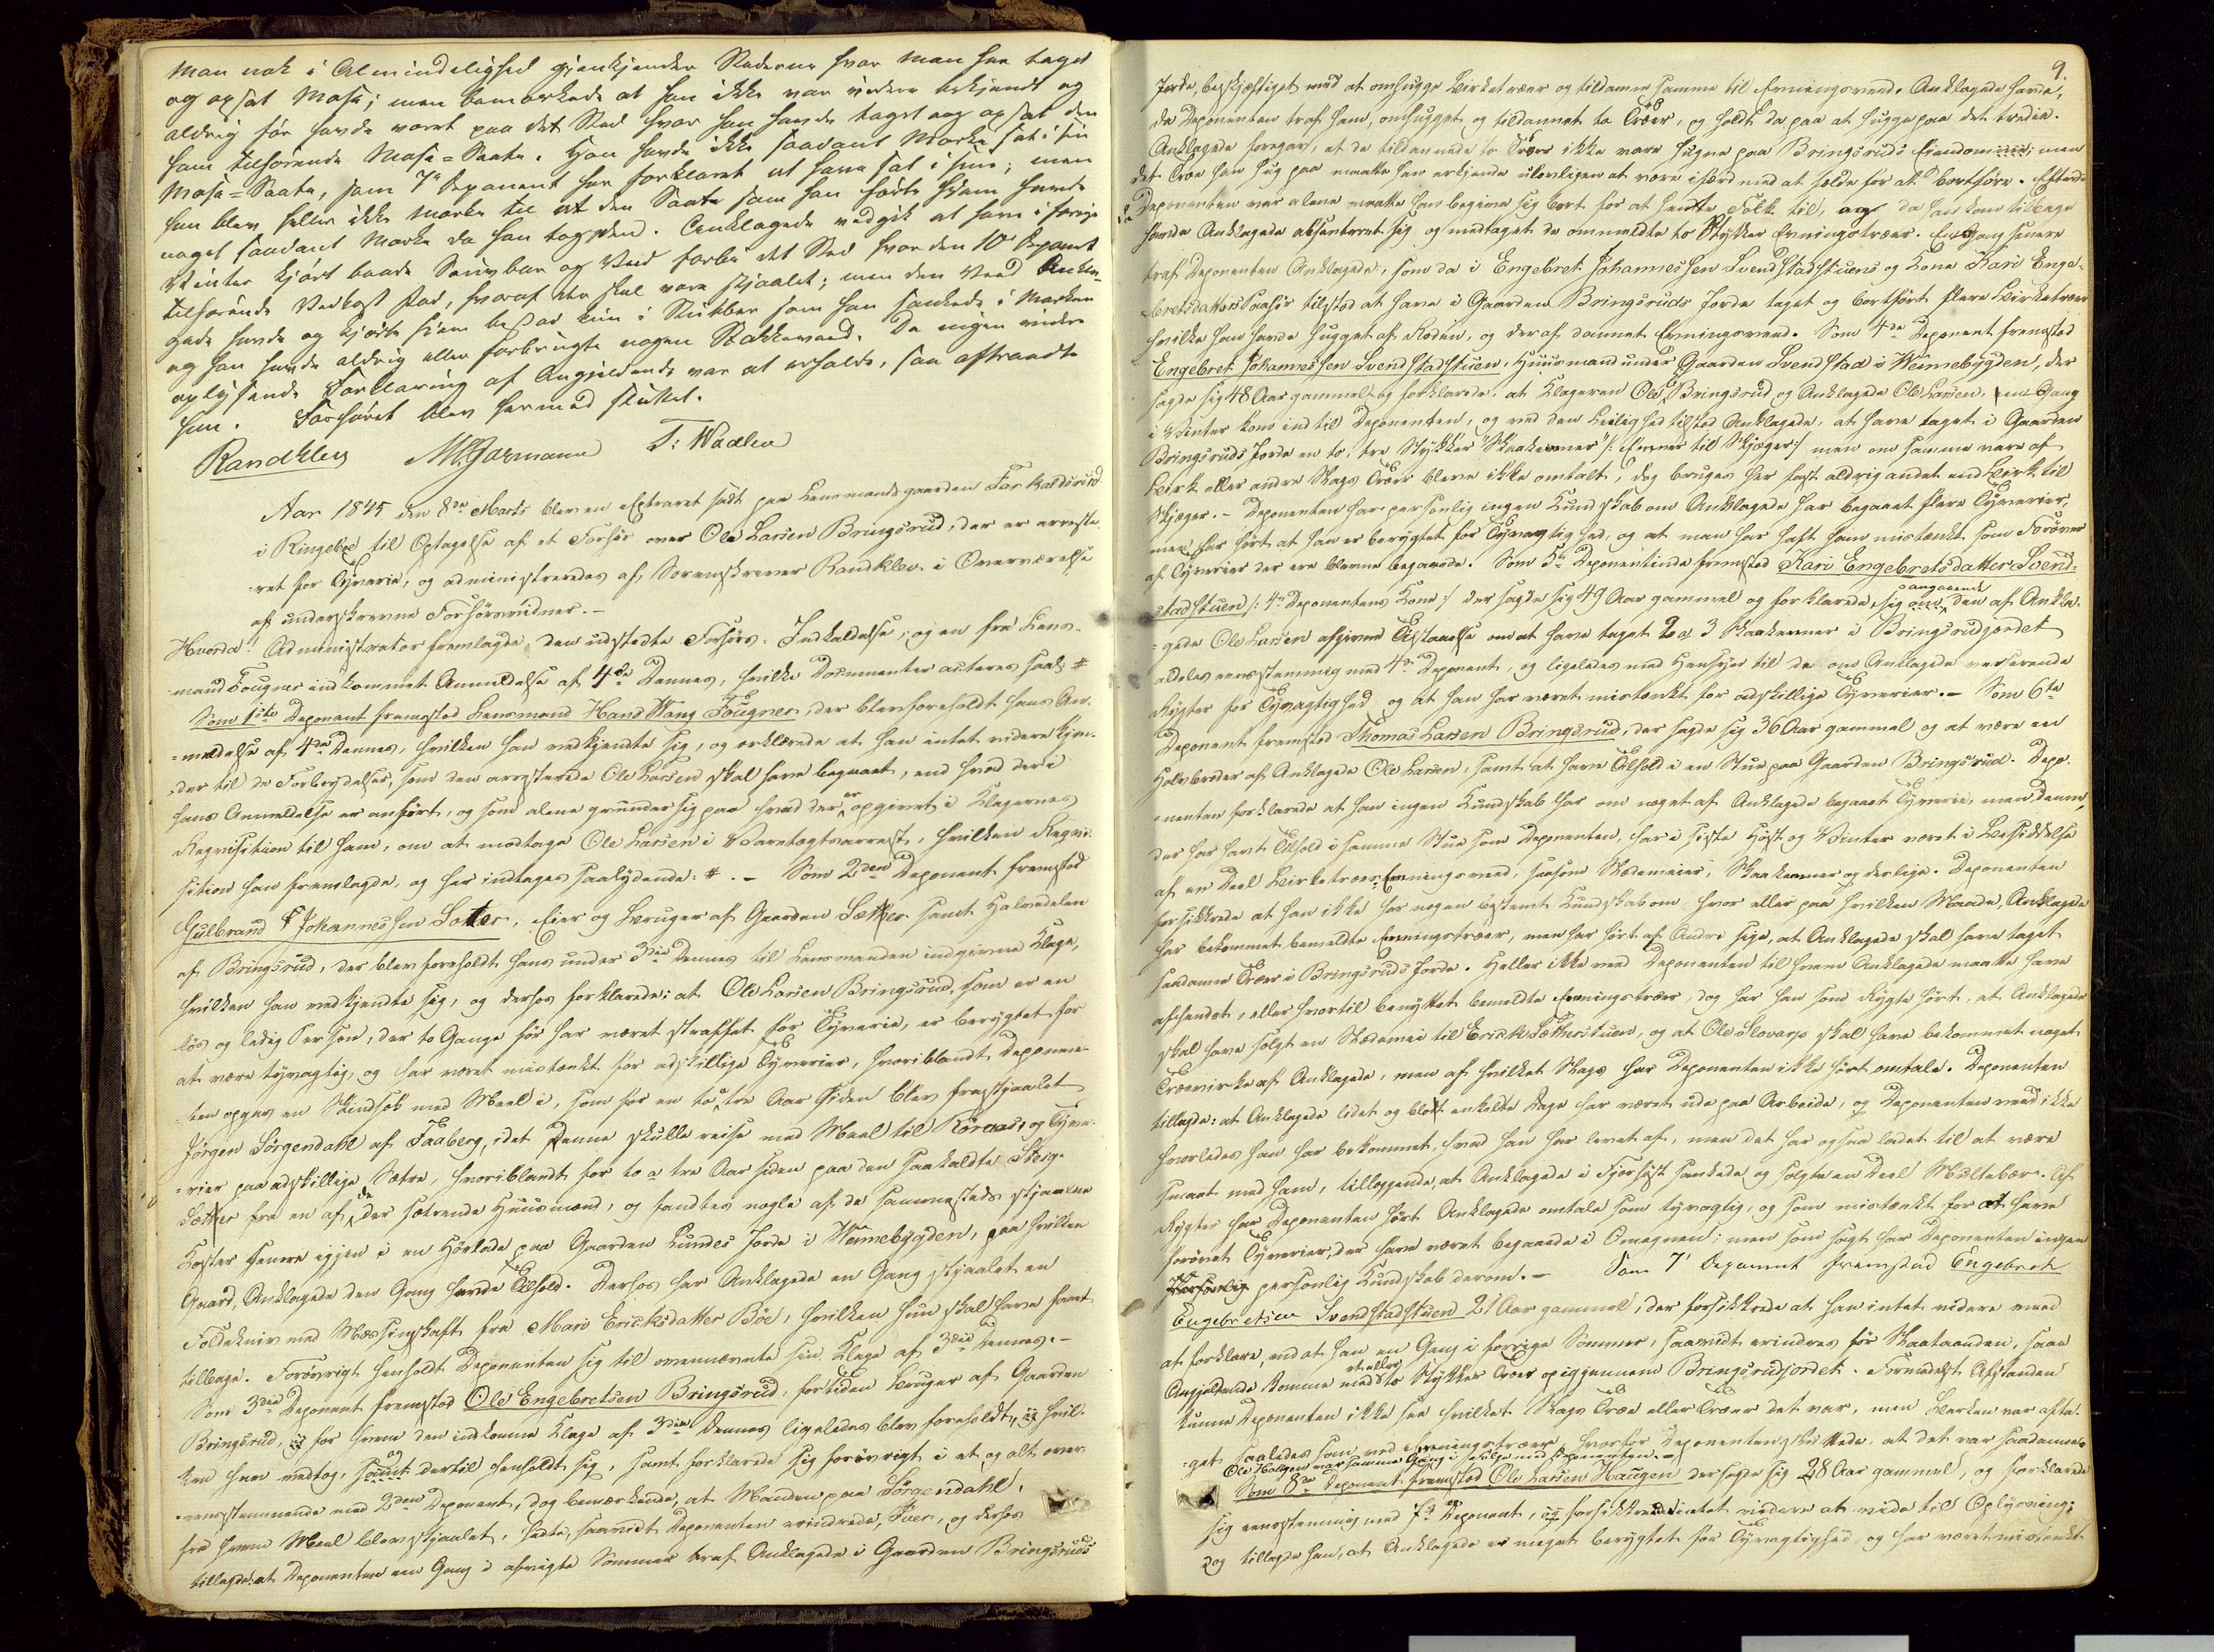 Man nok i Almindelighed gjenkjender Stederne hvor Man har taget
og opsat Mose; men bemærkede at han ikke var videre bekjendt og
aldrig før havde været paa det Sted hvor han havde taget og opsat den
ham tilhørende Mose-Saate. Han havde ikke saadant Mærke sat i sin
Mose-Saate, som 7de Deponent har forklaret at have sat i sin; men
han blev heller ikke Mærke til at den Saate som han førte hjem havde
noget saadant Mærke da han tog den. Anklagede vedgik at have i forrige
Vinter kjørt baade Saugbar og Ved forbi det Sted hvor den 10de Deponent
tilhørende Vedkast stod, hvoraf der skal være stjaalet; men den Veed Ankla-
gede havde og kjørte hjem bestod kun i som han sankede i Marken
og han havde aldrig eller forbrugte nogen Stakkeved. Da ingen videre
oplysende Forklaring af Angjeldende var at erholde, saa aftraadte
han. Forhøret blev hermed sluttet.
Randklev T: Waalen
Aar 1845 den 8de Marts blev en Extraret sadt paa Lensmandsgaarden Forkalsrud
i Ringeboe til Optagelse af et Forhør over Ole Larsen Bringsrud, der er arreste-
ret for Tyverie, og administreredes af Sorenskriver Randklev i Overværelse
af underskrevne Forhørsvidner. –
Hvorda! Administrator fremlagde den udstedte Forhørs-Indkaldelse, og en fra Lens-
mand Fougner indkommet Anmeldelse af 4de Dennes, hvilke Documenter acteres saal: #
Som 1ste Deponent fremstod Lensmand Hans Wang Fougner, der blev foreholdt hans An-
meldelse af 4de Dennes, hvilken han vedkjendte sig, og erklærede at han intet videre kjen-
der til de Forbrydelser, som den arresterede Ole Larsen skal have begaaet, end hvad der i
hans Anmeldelse er anført, og som alene grunder sig paa hvad der er opgivet i Klagernes
Reqvisition til ham, om at modtage Ole Larsen i Varetægtsarrest, hvilken Reqvi-
sition han fremlagde, og her indtages saalydende: #. – Som 2den Deponent fremstod
Gulbrand Johannessen Sæter, Eier og Bruger af Gaarden Sæther samt Halvedelen
af Bringsrud, der blev foreholdt hans under 3die Dennes til Lensmanden indgivne Klage,
hvilken han vedkjendte sig, og derhos forklarede: at Ole Larsen Bringsrud, som er en
løs og ledig Person, der to Gange før har været straffet for Tyverie, er berygtet for
at være tyvagtig, og har været mistænkt for adskillige Tyverier, hvoriblandt Deponen-
ten opgav en Skindsæk med Meel i, som for en to a tre Aar siden blev frastjaalet
Jørgen Jørgendahl af Faaberg, idet Denne skulle reise med Meel til Röraas, og Tyve-
rier paa adskillige Sætre, hvoriblandt for to a tre Aar siden paa den saakaldte
Sæther fra en af de der sætrende Huusmænd, og fandtes nogle af de sammesteds stjaalne
Koster senere igjen i en Høelade paa Gaarden Lundes Jorde i Wennebygden, paa hvilken
Gaard, Anklagede den Gang havde Tilhold. Derhos har Anklagede en Gang stjaalet en
Foldekniv med Messingskaft fra Mari Ericksdatter Böe, hvilken hun skal have faaet
tilbage. Forøvrigt henholdt Deponenten sig til ovennævnte sin Klage af 3die Dennes. –
Som 3die Deponent fremstod Ole Engebretsen Bringsrud, fortiden Bruger af Gaarden
Bringsrud, for hvem den indkomne Klage af 3die Dennes ligeledes blev foreholdt, hvil-
ken han vedtog, og dertil henholdt sig, samt forklarede sig forøvrigt i et og alt over-
eensstemmende med 2den Deponent, dog bemærkende, at Manden paa Jørgendahl,
fra hvem Meel blev stjaalet, hedte, saavidt Deponenten erindrede, Iver, og derhos
tillagde: at Deponenten een Gang i afvigte Sommer traf Anklagede i Gaarden Bringsruds
9.
Jorde, beskjæftiget med at omhugge Birketræer og tildanne samme til Emningsveed. Anklagede havde,
da Deponenten traf ham, omhugget og tildannet to Træer, og holdt da paa at hugge paa det tredie.
Anklagede foregav, at de tildannede to Træer ikke vare hugne paa Bringsruds Eiendom; men
det Træ han hug paa maatte han erkjende ulovligen at være ifærd med at fælde for at bortføre. Efterat
Deponenten var alene maatte han begive sig bort for at hente Folk til, og da han kom tilbage
havde Anklagede absenteret sig og medtaget de ommeldte to Stykker Emningstræer. En Gang senere
traf Deponenten Anklagede, som da i Engebret Johannessen Svendstadstuens og Kone Kari Enge-
bretsdatters Paahør tilstod at have i Gaarden Bringsruds Jorde taget og bortført flere Birketræer
hvilke han havde hugget af Roden, og deraf dannet Emningsveed. Som 4de Deponent fremstod
Engebret Johannessen Svendstadstuen, Huusmand under Gaarden Svendstad i Wennebygden, der
sagde sig 48 Aar gammel og forklarede, at Klageren Ole Bringsrud og Anklagede Ole Larsen, een Gang
i Vinter kom ind til Deponenten, og ved den Leilighed tilstod Anklagede, at have taget i Gaarden
Bringsruds Jorde en to, tre Stykker "Skaakemner" /: Emner til Skjæger :/ men om samme vare af
Birk eller andre Slags Træer bleve ikke omtalt, dog bruges her fast aldrig andet end Birk til
Skjæger. – Deponenten har personlig ingen Kundskab om Anklagede har begaaet flere Tyverier,
men har hørt at han er berygtet for Tyvagtighed, og at man har haft ham mistænkt som Forøver
af Tyverier der ere blevne begaaede. Som 5te Deponentinde fremstod Kari Engebretsdatter Svend-
stadstuen /: 4de Deponentens Kone :/ der sagde sig 49 Aar gammel og forklarede sig angaaende den af Ankla-
gede Ole Larsen afgivne Tilstaaelse om at have taget 2 a 3 Skaakemner i Bringsrudjordet
aldeles eensstemmig med 4de Deponent, og ligeledes med Hensyn til de om Anklagede verserende
Rygter for Tyvagtighed og at han har været mistænkt for adskillige Tyverier. – Som 6te
Deponent fremstod Thomas Larsen Bringsrud, der sagde sig 36 Aar gammel og at være en
Halvbroder af Anklagede Ole Larsen, samt at have Tilhold i en Stue paa Gaarden Bringsrud. Depo-
nenten forklarede at han ingen Kundskab har om noget af Anklagede begaaet Tyverie, men denne,
der har havt Tilhold i samme Stue som Deponenten, har i sidste Høst og Vinter været i Besiddelse
af en Deel Birketræer, Emningsveed, saasom Slædemeier, Skaakemner og deslige. Deponenten
forsikkrede at han ikke har nogen bestemt Kundskab om, hvor eller paa hvilken Maade, Anklagede
har bekommet bemeldte Emningstræer, men har hørt af Andre sige, at Anklagede skal have taget
saadanne Træer i Bringsruds Jorde. Heller ikke veed Deponenten til hvem Anklagede maatte have
afhendet, eller hvortil benyttet bemeldte Emningstræer, dog har han som Rygte hørt, at Anklagede
skal have solgt en Slædemei til Erick Sætherstuen, og at Ole Slovarp skal have bekommet noget
Trævirke af Anklagede, men af hvilket Slags har Deponenten ikke hørt omtale. Deponenten
tillagde: at Anklagede lidet og blott enkelte Dage har været ude paa Arbeide, og Deponenten veed ikke
hvorledes han har bekommet, hvad han har levet af, men det har ogsaa ladet til at være
smaat med ham, tillæggende, at Anklagede i Fjorhøst sankede og solgte en Deel Multebær. Af
Rygter har Deponenten hørt Anklagede omtale som tyvagtig, og som mistænkt for at have
forøvet Tyverier, der have været begaaede i Omegnen; men som sagt har Deponenten ingen
personlig Kundskab derom. – Som 7de Deponent fremstod Engebret
Engebretsen Svendstadstuen 21 Aar gammel, der forsikkrede at han intet videre veed
at forklare, end at han en Gang i forrige Sommer, saavidt erindres før Slaataanden, saae
Angjeldende komme med et eller to Stykker Træer opigjennem Bringsrudjordet. Formedelst Afstanden
kunne Deponenten ikke see hvilket Slags Træe eller Træer det var, men Barken var afta-
get saaledes som ved Emningstræer, hvorfor Deponenten sluttede, at det var saadanne.
Ole Haugen var samme Gang i Følge med Deponenten. –
Som 8de Deponent fremstod Ole Larsen Haugen der sagde sig 28 Aar gammel, og forklarede
sig eensstemmig med 7de Deponent, og forsikkrede intet videre at vide til Oplysning;
dog tillagde han, at Anklagede er meget berygtet for Tyvagtighed og har været mistænkt